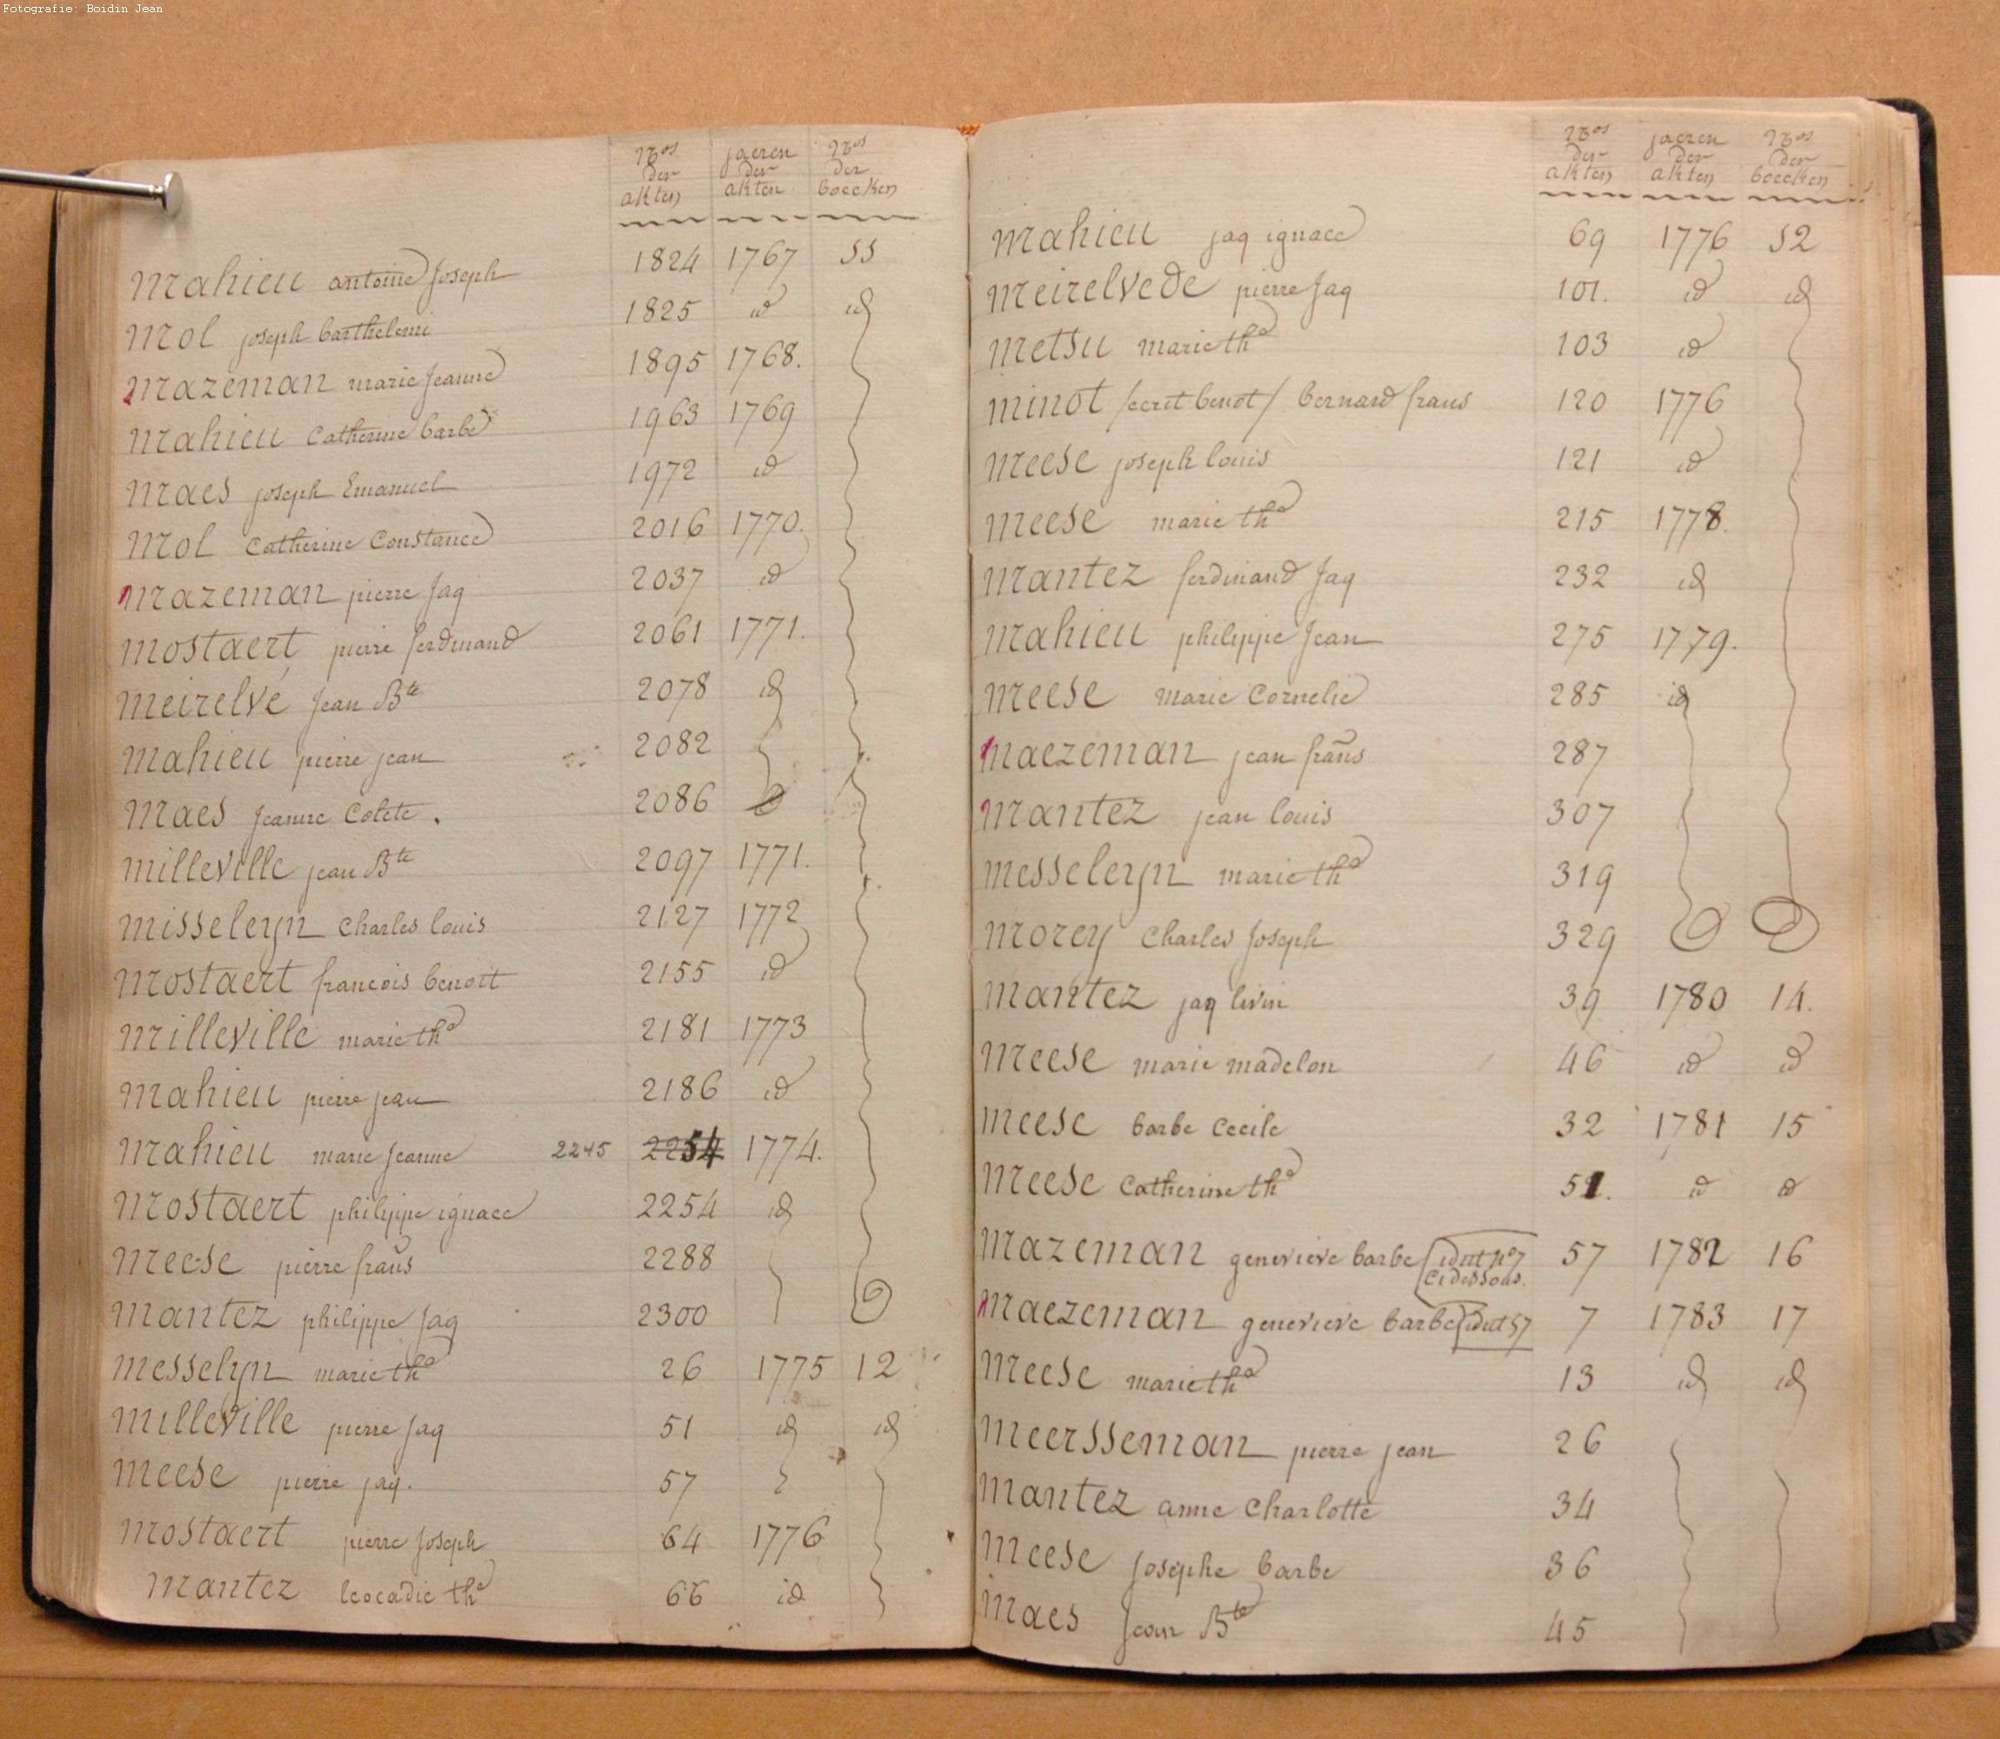 Fotografie: Boidin Jean
nos der akten jaeren der akten nos der boecken
mahieu antoine joseph 1824 1767 SS
mol joseph barthelemi 1825 id id
mazeman marie jeanne 1895 1768.
mahieu Catherine barbe 1963 1769
maes joseph Emanuel 1972 id
mol Catherine Constance 2016 1770.
mazeman pierre jaq 2037 id
mostaert pierre ferdinand 2061 1771.
meirelvé jean Bte 2078 id
mahieu pierre jean 2082
maes jeanne Colete. 2086
milleville jean Bte 2097 1771.
misseleyn Charles louis 2127 1772
mostaert francois benoit 2155 id
milleville marie the 2181 1773
mahieu pierre jean 2186 id
mahieu marie jeanne 2245 2254 1774.
mostaert philippe ignace 2254 id
meese pierre frans 2288
mantez philippe jaq 2300
messelyn marie the 26 1775 12
milleville pierre jaq 51 id id
meese pierre jaq. 57
mostaert pierre joseph 64 1776
mantez leocadie the 66 id
nos der akten jaeren der akten nos der boecken
mahieu jaq ignace 69 1776 S2
meirelvede pierre jaq 101. id id
metsu marie the 103 id
minot /ecrit benot/ bernard frans 120 1776
meese joseph louis 121 id
meese marie the 215 1778.
mantez ferdinand jaq 232 id
mahieu philippe jean 275 1779.
meese marie Cornelie 285 id
maezeman jean frans 287
mantez jean louis 307
messeleyn marie the 319
morey Charles joseph 329
mantez jaq livin 39 1780 14.
meese marie madelon 46 id id
meese barbe Cecile 32 1781 15
meese Catherine the 51. id id
mazeman genevieve barbe idat no 7 57 1782 16
ci dessous.
maezeman genevieve barbe idat 57 7 1783 17
meese marie the 13 id id
meersseman pierre jean 26
mantez anne Charlotte 34
meese josephe barbe 36
maes jean Bte 45